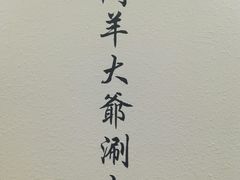 羊大爺涮